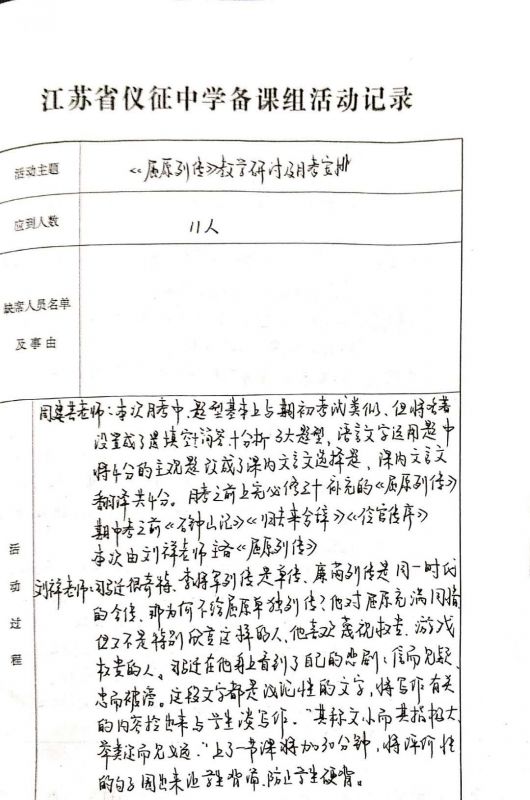 江苏省仪征中学备课组活动记录
活动主题
《屈原列传》教学研讨及月考安排
应到人数
11人
缺席人员名单
及事由
活动过程
老师:本次月考中,题型基本上与期初考试类似,但将名著
设置成了是填空+简答+分析3大题型,语言文字运用题中
将4分的主观题改成了课内文言文选择题,课内文言文
翻译共4分。月考之前上完必修三+补充的《屈原列传》
期中考之前《石钟山记》《归去来兮辞》《伶官传序》
本次由刘祥老师主备《屈原列传》
刘祥老师:司马迁很奇特,李将军列传是单传,廉蔺列传是同一时代
的合传,那为何不给屈原单独列传?他对屈原充满同情
但又不是特别欣赏这样的人,他喜欢蔑视权贵、游戏
权贵的人。司马迁在他身上看到了自己的悲剧:信而见疑,
忠而被谤。这段文字都是议论性的文字,将写作有关
的内容拎出来与学生谈写作。"其称文小而其指极大,
举类迩而见义远。"上了一节课将加30分钟,将评价性
的句子圈出来让学生背诵,防止学生硬背。